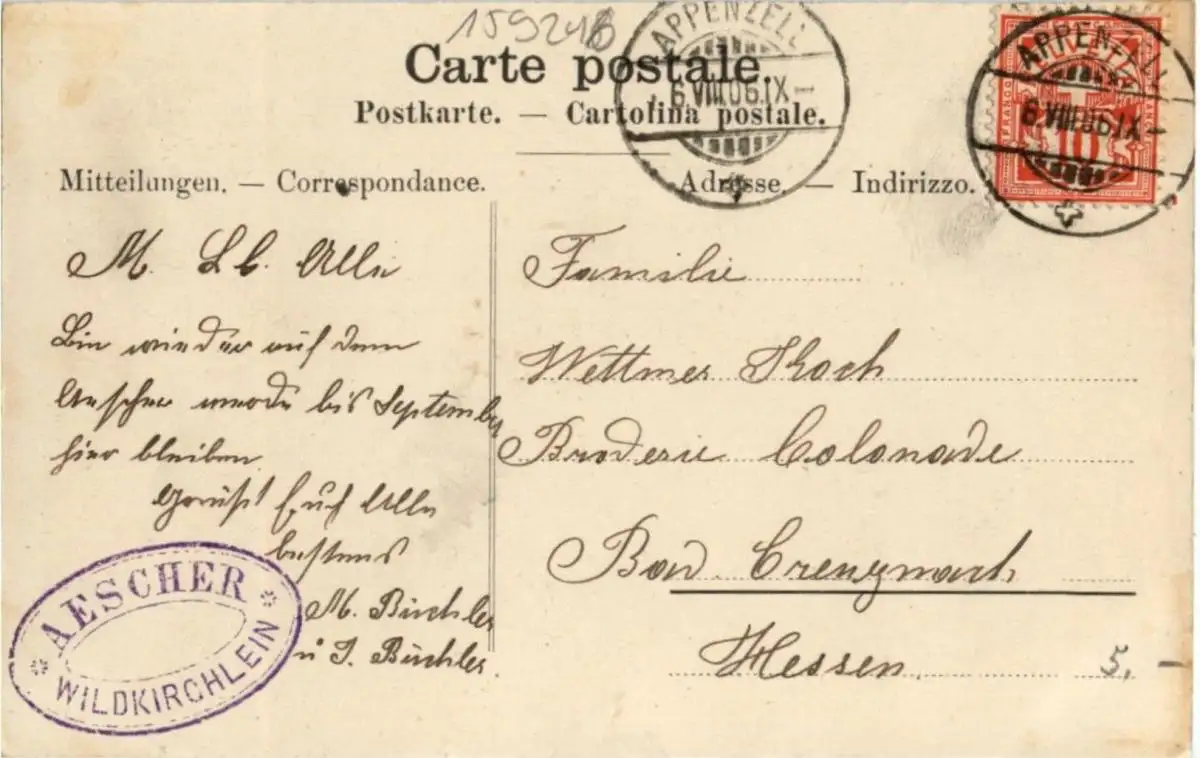 159246
Carte postale.
Postkarte. — Cartolina postale.
Mitteilungen. — Correspondance.
Adresse. — Indirizzo.
APPENZELL
6.VIII.06.IX—
APPENZELL
6.VIII.06.IX—
10
M. Lb. Alle
Bin wieder auf dem
Aescher werde bis September
hier bleiben.
Grüsst Euch Alle
bestens
M. Büchler
u J. Büchler.
AESCHER
WILDKIRCHLEIN
Familie
Wettmer Koch
Broderie Colonade
Bad Creuznach
Hessen.
5.—